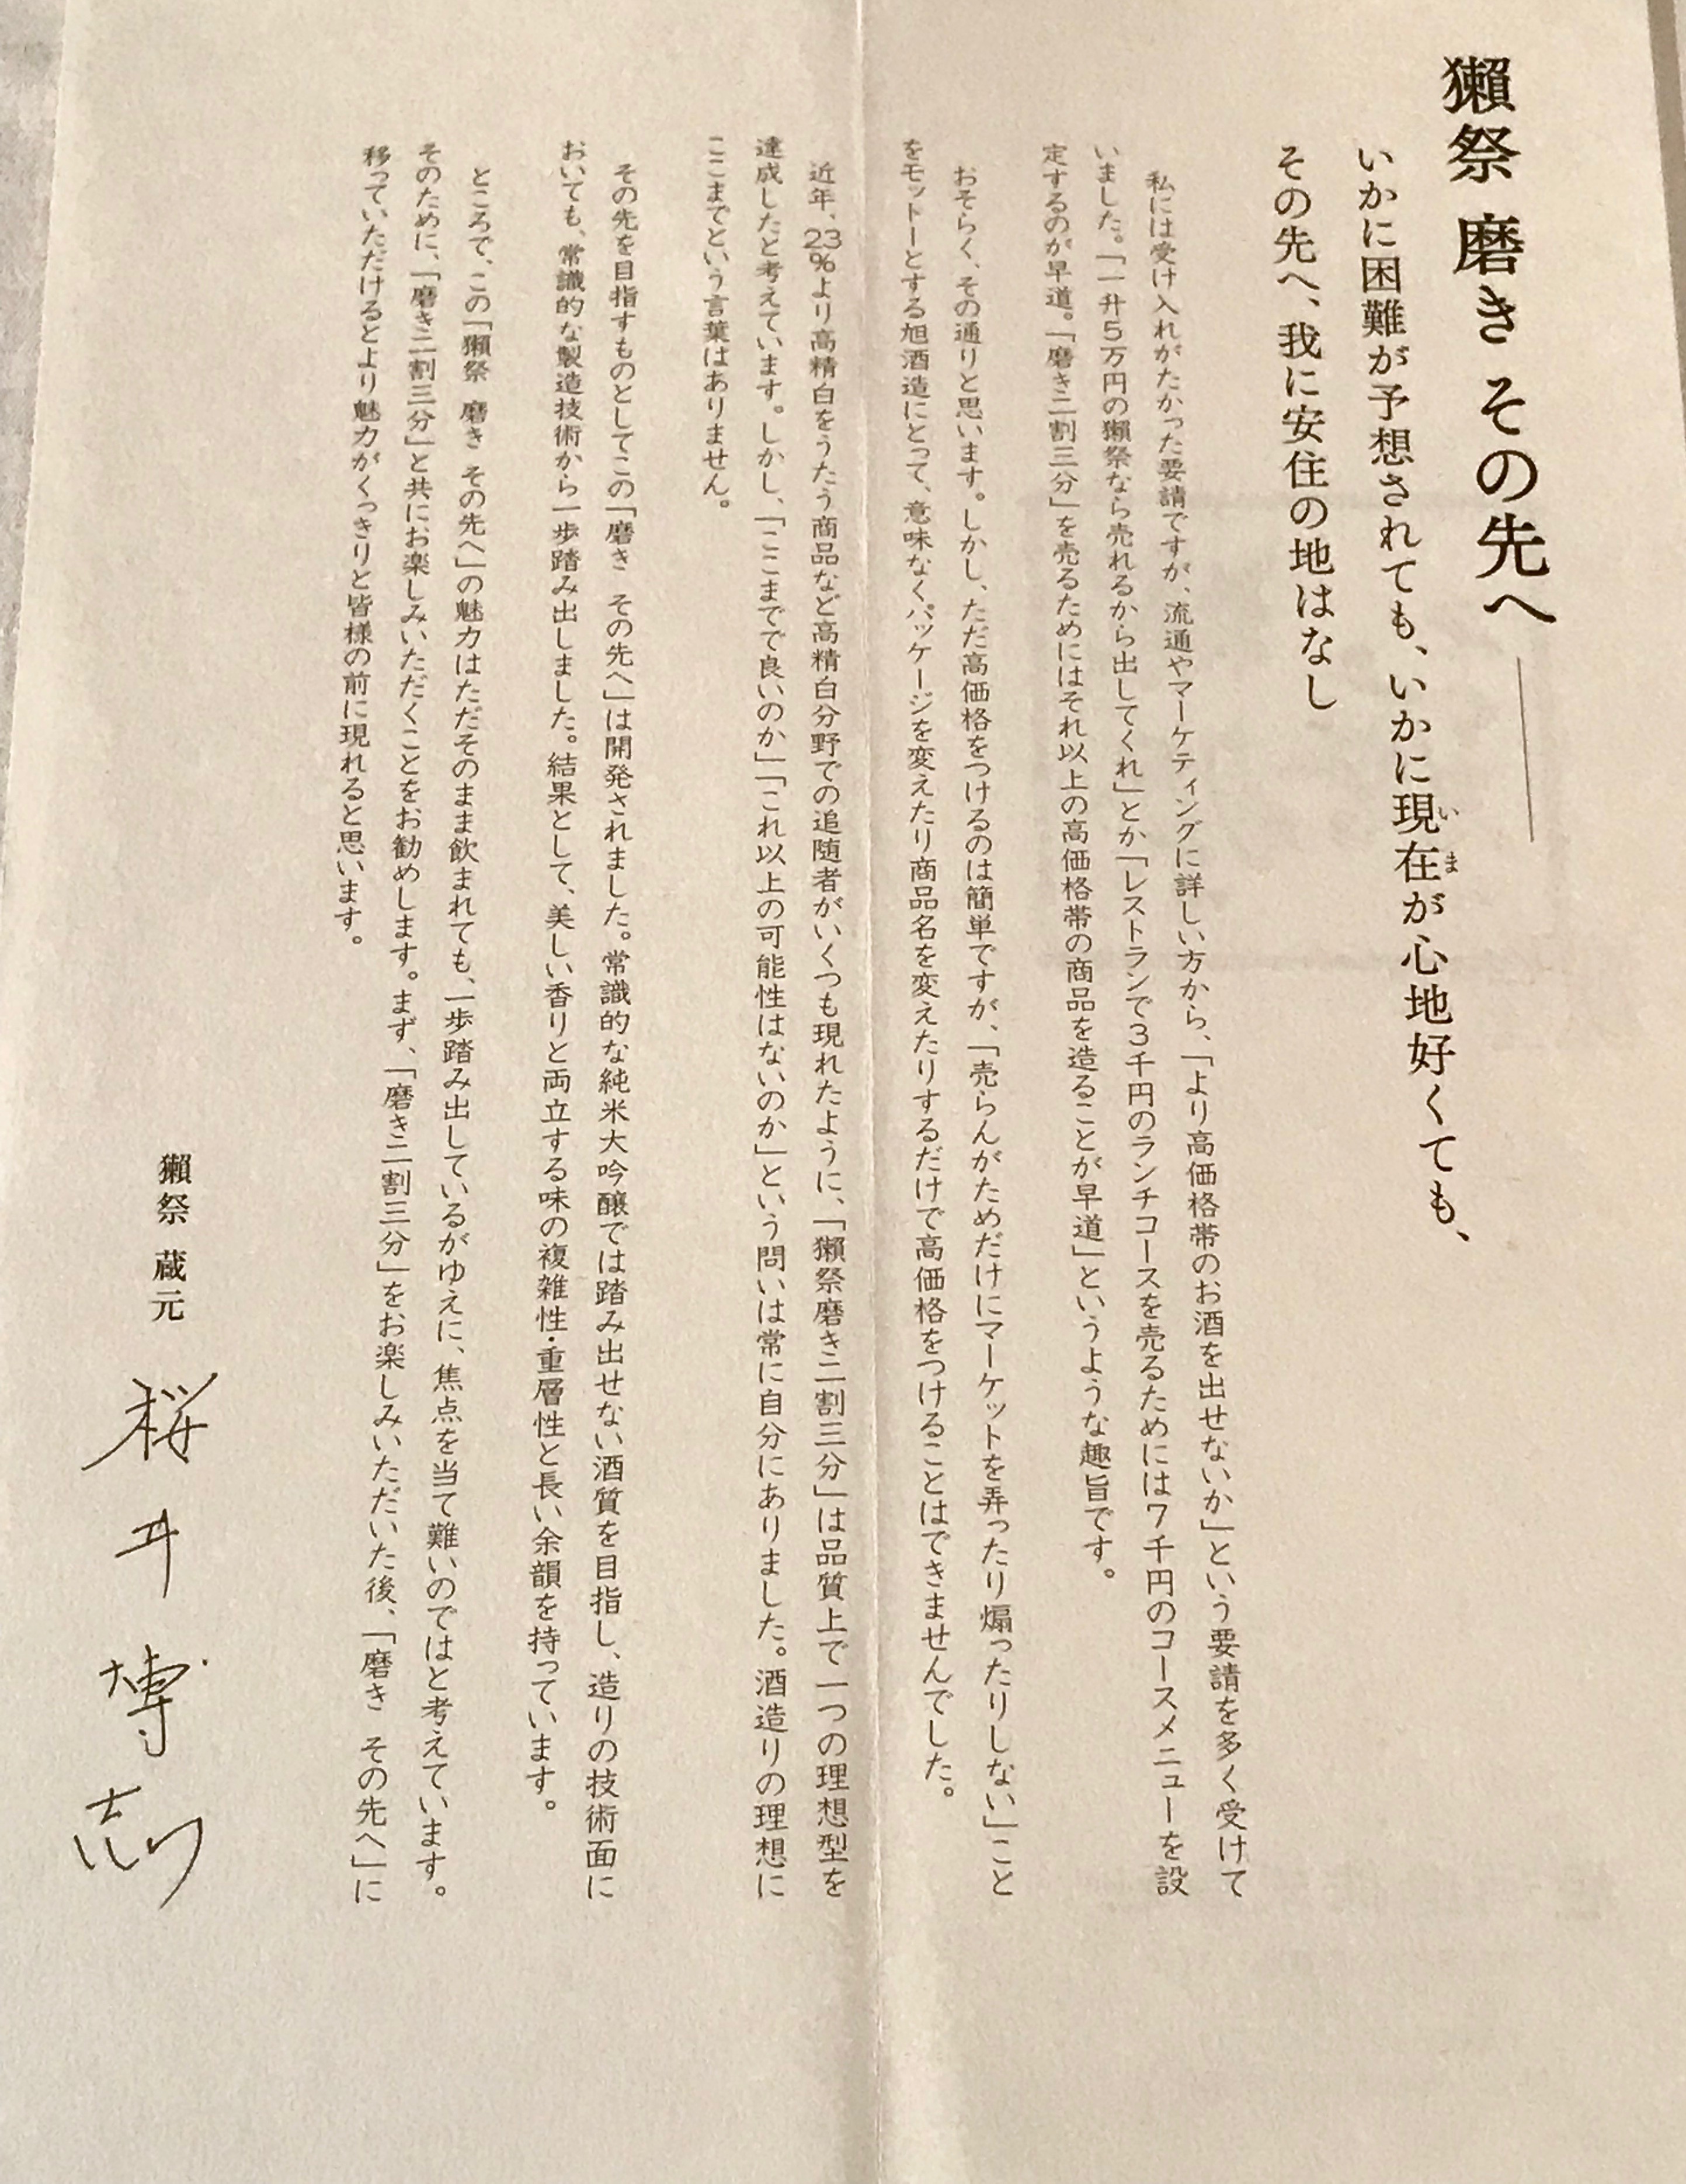 獺祭 磨き その先へ
いかに困難が予想されても、いかに現在が心地好くても、
いま
その先へ、我に安住の地はなし
私には受け入れがたかった要請ですが、流通やマーケティングに詳しい方から、「より高価格帯のお酒を出せないか」という要請を多く受けて
いました。「一升5万円の獺祭なら売れるから出してくれ」とか「レストランで3千円のランチコースを売るためには7千円のコースメニューを設
定するのが早道。「磨き二割三分」を売るためにはそれ以上の高価格帯の商品を造ることが早道」というような趣旨です。
おそらく、その通りと思います。しかし、ただ高価格をつけるのは簡単ですが、「売らんがためだけにマーケットを弄ったり煽ったりしない」こと
をモットーとする旭酒造にとって、意味なくパッケージを変えたり商品名を変えたりするだけで高価格をつけることはできませんでした。
近年、23%より高精白をうたう商品など高精白分野での追随者がいくつも現れたように、「獺祭磨き二割三分」は品質上で一つの理想型を
達成したと考えています。しかし、「ここまでで良いのか」「これ以上の可能性はないのか」という問いは常に自分にありました。酒造りの理想に
ここまでという言葉はありません。
その先を目指すものとしてこの「磨き その先へ」は開発されました。常識的な純米大吟醸では踏み出せない酒質を目指し、造りの技術面に
おいても、常識的な製造技術から一歩踏み出しました。結果として、美しい香りと両立する味の複雑性・重層性と長い余韻を持っています。
ところで、この「獺祭 磨き その先へ」の魅力はただそのまま飲まれても、一歩踏み出しているがゆえに、焦点を当て難いのではと考えています。
そのために、「磨き二割三分」と共にお楽しみいただくことをお勧めします。まず、「磨き二割三分」をお楽しみいただいた後、「磨き その先へ」に
移っていただけるとより魅力がくっきりと皆様の前に現れると思います。
獺祭 蔵元 桜井博志